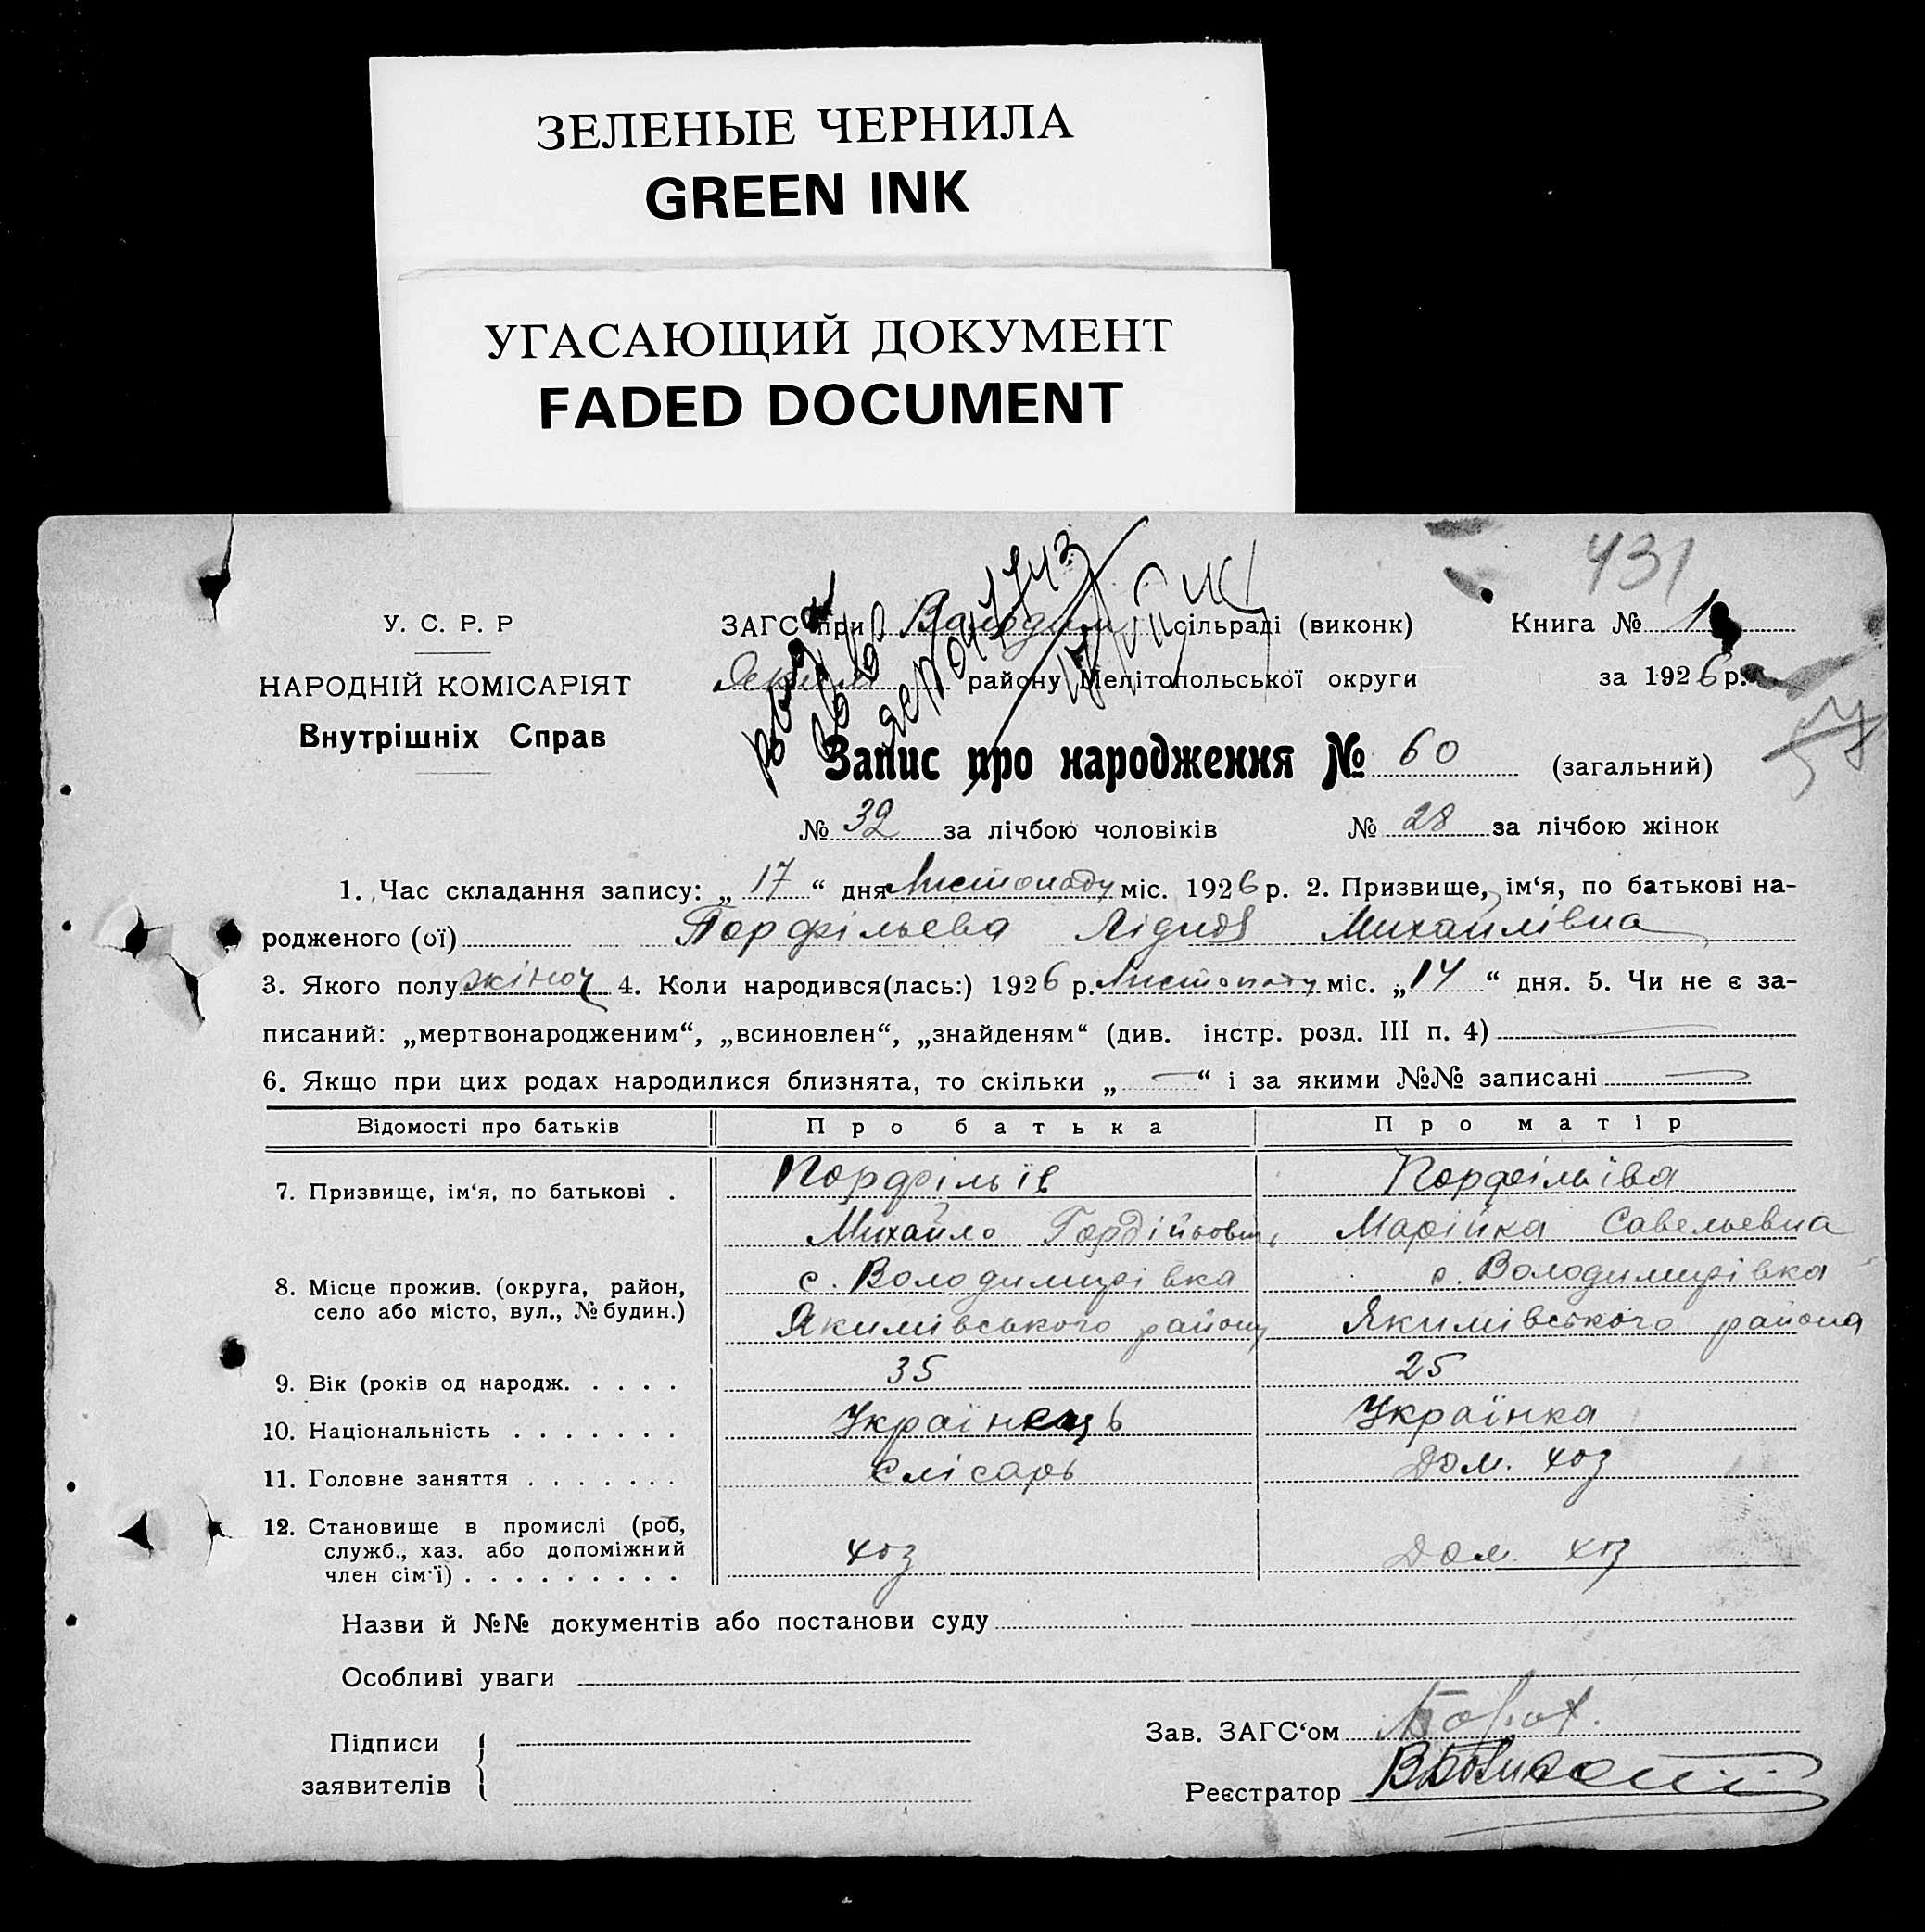 ЗЕЛЕНЫЕ ЧЕРНИЛА
GREEN INK
УГАСАЮЩИЙ ДОКУМЕНТ
FADED DOCUMENT
431
У. С. Р. Р
НАРОДНІЙ КОМІСАРІЯТ
Внутрішніх Справ
ЗАГС при Володим сільраді (виконк)
Книга № 1
Яким району Мелітопольської округи
за 1926 р.
Запис про народження № 60 (загальний)
№ 32 за лічбою чоловіків № 28 за лічбою жінок
1. Час складання запису: „ 17 “ дня Листопаду міс. 1926 р. 2. Призвище, ім‘я, по батькові на-
родженого (ої) Порфільева Лідия Михайлівна
3. Якого полу жіноч 4. Коли народився(лась:) 1926 р. Листопаду міс. „14 “ дня. 5. Чи не є за-
писаний: „мертвонародженим“, „всиновлен“, „знайденям“ (див. інстр. розд. III п. 4)
6. Якщо при цих родах народилися близнята, то скільки „ — “ і за якими №№ записані —
Відомості про батьків Про батька Про матір
7. Призвище, ім‘я, по батькові . Порфільїв Порфільіва
Михайло Гордійьович Марійка Савельевна
8. Місце прожив. (округа, район, с. Володимирівка с. Володимирівка
село або місто, вул., № будин.) Якимівського району Якимівського района
9. Вік (років од народж. . . . . 35 25
10. Національність . . . . . . . Українець Українка
11. Головне заняття . . . . . . . Слісарь Дом. хоз
12. Становище в промислі (роб,
служб., хаз. або допоміжний хоз Дом. хоз
член сім‘ї) . . . . . . . . .
Назви й №№ документів або постанови суду
Особливі уваги
Підписи
заявителів
Зав. ЗАГС‘ом
Реєстратор